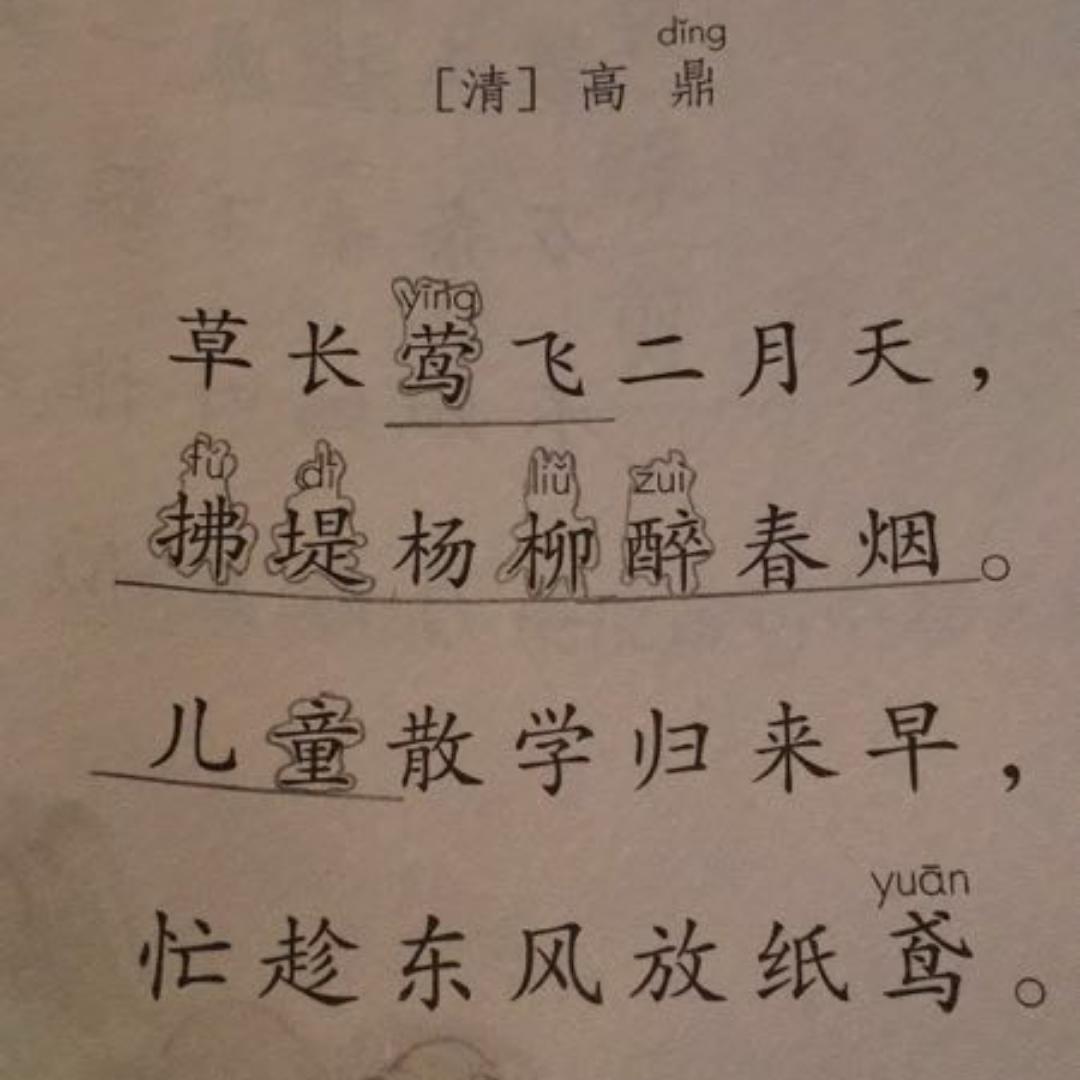 dǐng
[清] 高 鼎
yīng
草长莺飞二月天，
fú dī liǔ zuì
拂堤杨柳醉春烟。
儿童散学归来早，
yuān
忙趁东风放纸鸢。